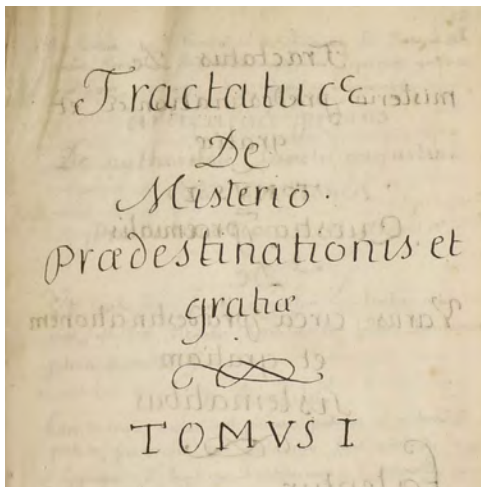 Tractatuce
De
Misterio.
Prædestinationis et
gratiæ
TOMVS I